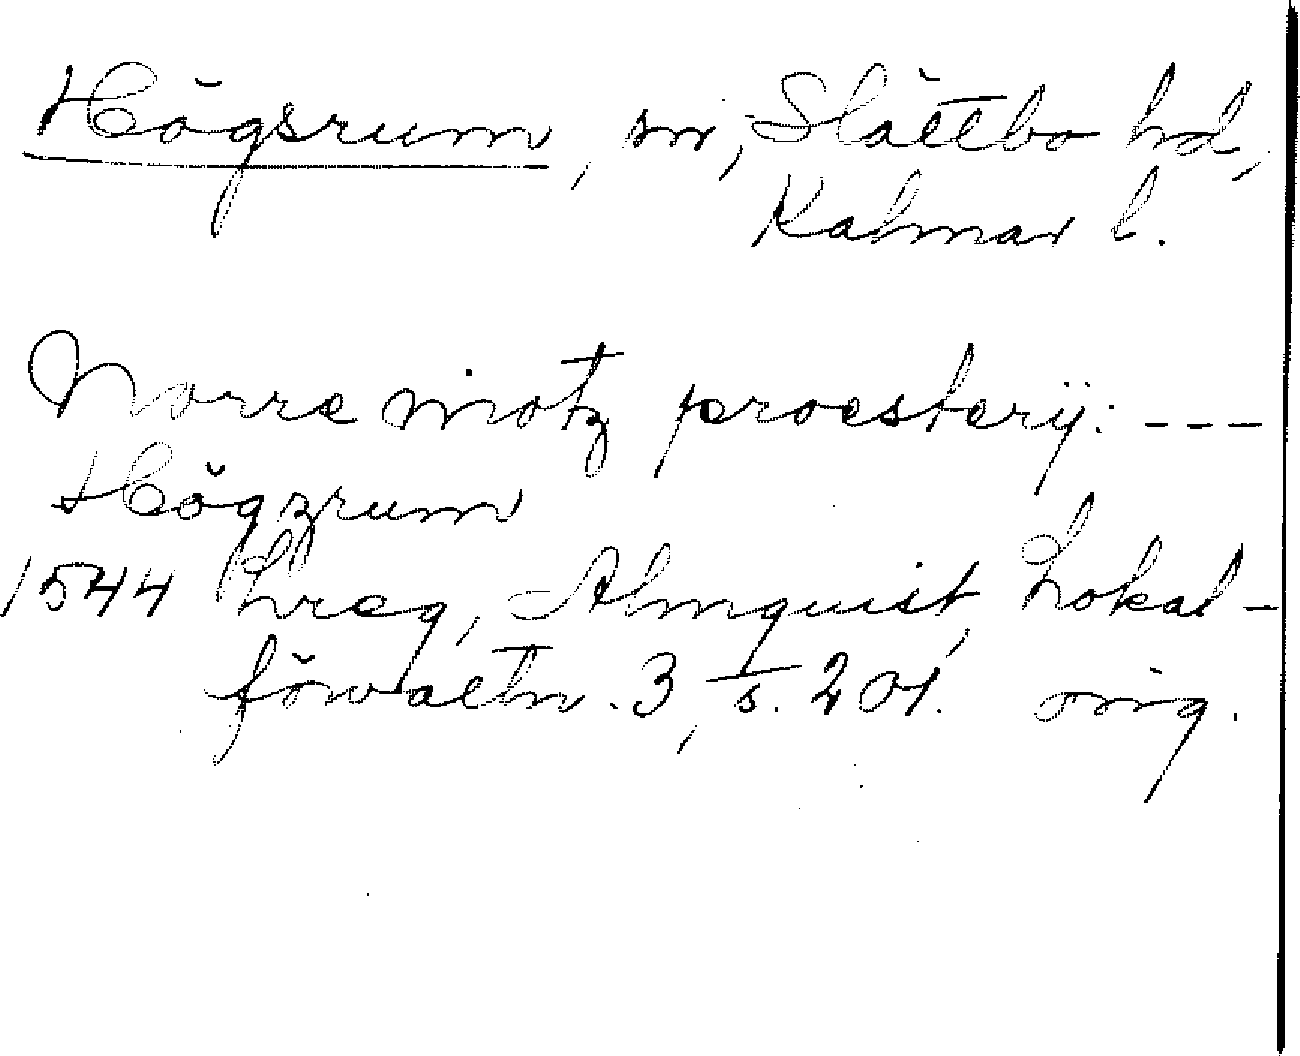 Högsrum, sn, Slättbo hd,
Kalmar l.
Norre motz proesterij: ---
Högzrum
1544 Lreg, Almquist, Lokal-
förvaltn. 3, s. 201. orig.